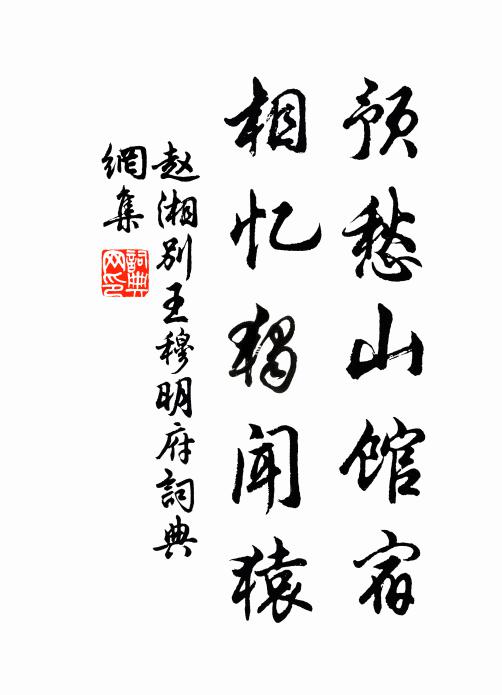 预愁山馆宿
相忆独闻猿
赵湘别王穆明府词典
网集
词典网印